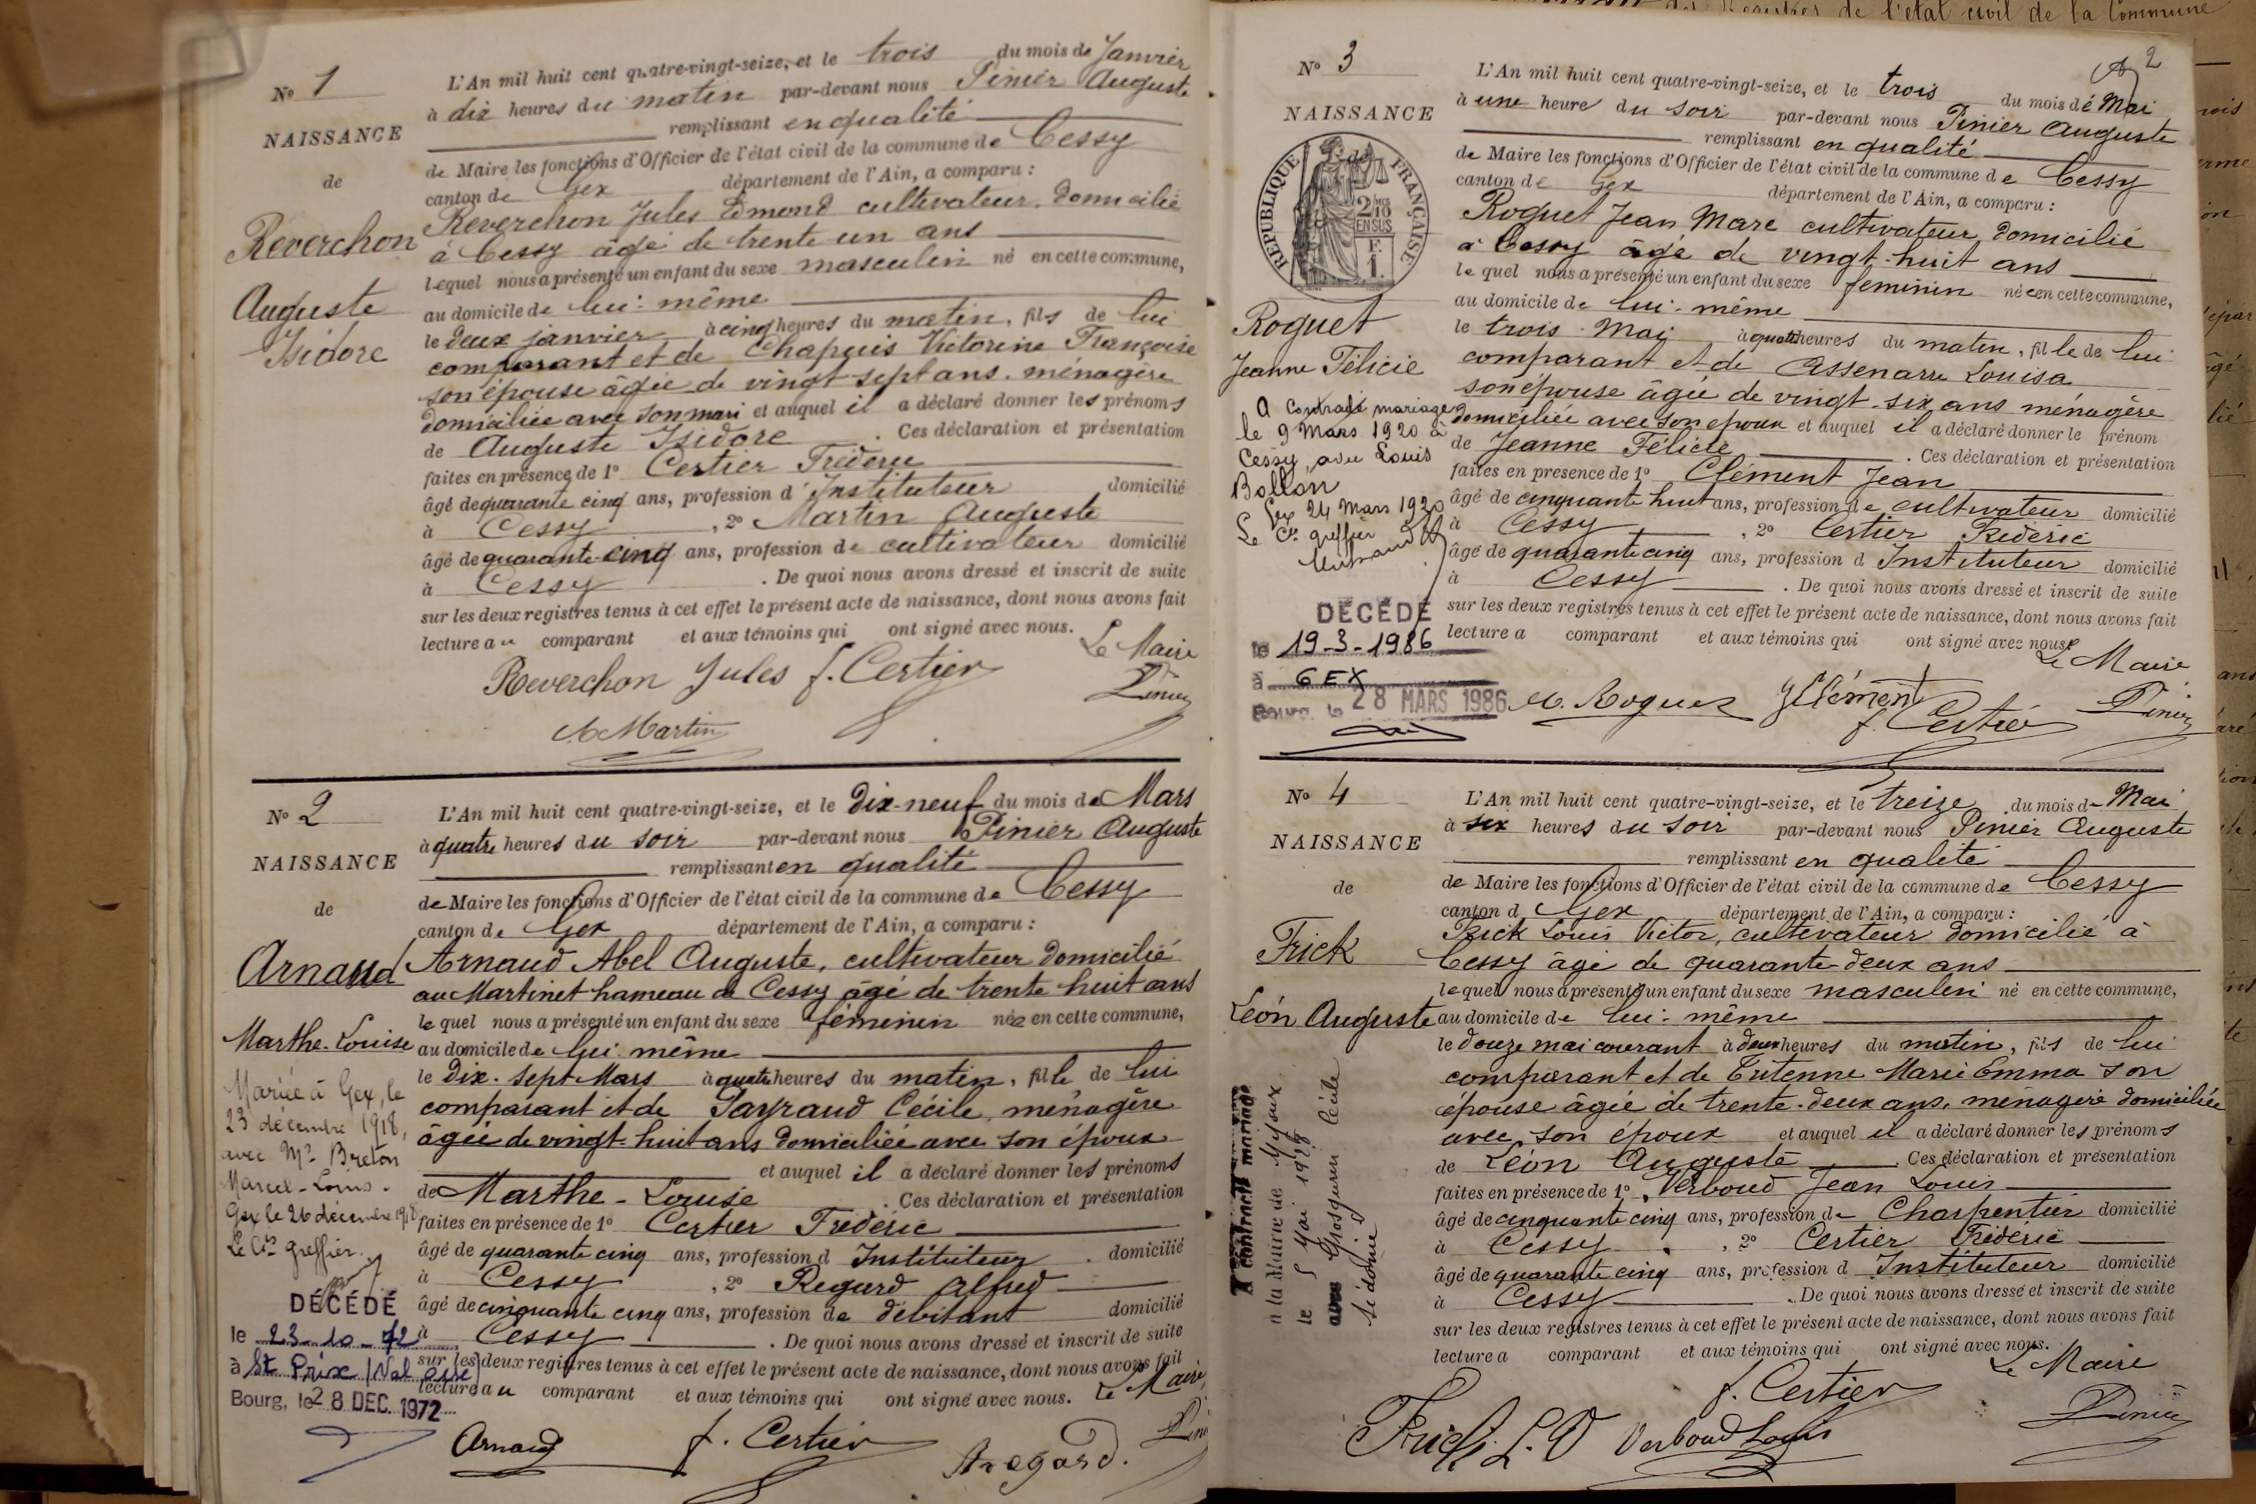 N° 1
NAISSANCE
de
Reverchon
Auguste
Isidore
L'An mil huit cent quatre-vingt-seize, et le trois du mois de Janvier
à dix heures du matin par-devant nous Pinier Auguste
remplissant en qualité
de Maire les fonctions d'Officier de l'état civil de la commune de Cessy
canton de Gex département de l'Ain, a comparu :
Reverchon Jules Edmond cultivateur domicilié
à Cessy âgé de trente un ans
lequel nous a présenté un enfant du sexe masculin né en cette commune,
au domicile de lui-même
le deux janvier à cinq heures du matin, fils de lui
comparant et de Chapuis Victorine Françoise
son épouse âgée de vingt sept ans, ménagère
domiciliée avec son mari et auquel il a déclaré donner les prénoms
de Auguste Isidore . Ces déclaration et présentation
faites en présence de 1° Certier Frédéric
âgé de quarante cinq ans, profession d'Instituteur domicilié
à Cessy , 2° Martin Auguste
âgé de quarante-cinq ans, profession de cultivateur domicilié
à Cessy . De quoi nous avons dressé et inscrit de suite
sur les deux registres tenus à cet effet le présent acte de naissance, dont nous avons fait
lecture au comparant et aux témoins qui ont signé avec nous.
Le Maire
Reverchon Jules f. Certier Pinier
A Martin
N° 2
NAISSANCE
de
Arnaud
Marthe-Louise
Mariée à Gex, le
23 décembre 1918,
avec Mr Breton
Marcel-Louis.
Gex le 26 décembre 1918
Le Cis greffier.
DÉCÉDÉ
le 23-10-72
à St Prix (Val Oise)
Bourg, le 28 DEC. 1972
L'An mil huit cent quatre-vingt-seize, et le dix-neuf du mois de Mars
à quatre heures du soir par-devant nous Pinier Auguste
remplissant en qualité
de Maire les fonctions d'Officier de l'état civil de la commune de Cessy
canton de Gex département de l'Ain, a comparu :
Arnaud Abel Auguste, cultivateur domicilié
au Martinet hameau de Cessy âgé de trente huit ans
lequel nous a présenté un enfant du sexe féminin née en cette commune,
au domicile de lui-même
le dix-sept Mars à quatre heures du matin, fille de lui
comparant et de Payraud Cécile, ménagère
âgée de vingt-huit ans domiciliée avec son époux
et auquel il a déclaré donner les prénoms
de Marthe-Louise . Ces déclaration et présentation
faites en présence de 1° Certier Frédéric
âgé de quarante cinq ans, profession d Instituteur domicilié
à Cessy , 2° Regard Alfred
âgé de cinquante cinq ans, profession de débitant domicilié
à Cessy . De quoi nous avons dressé et inscrit de suite
sur les deux registres tenus à cet effet le présent acte de naissance, dont nous avons fait
lecture au comparant et aux témoins qui ont signé avec nous.
Le Maire,
Arnaud f. Certier A regard.
2
N° 3
NAISSANCE
de
RÉPUBLIQUE FRANÇAISE
2/10 EN SUS
F.
1.
Roguet
Jeanne Félicie
A contracté mariage
le 9 Mars 1920 à
Cessy, avec Louis
Bollon
Gex 24 Mars 1920
Le Cis greffier
DÉCÉDÉ
le 19-3-1986
à GEX
Bourg, le 28 MARS 1986
L'An mil huit cent quatre-vingt-seize, et le trois du mois de Mai
à une heure du soir par-devant nous Pinier Auguste
remplissant en qualité
de Maire les fonctions d'Officier de l'état civil de la commune de Cessy
canton de Gex département de l'Ain, a comparu :
Roguet Jean Marc cultivateur domicilié
à Cessy âgé de vingt-huit ans
lequel nous a présenté un enfant du sexe féminin née en cette commune,
au domicile de lui-même
le trois Mai à quatre heures du matin, fille de lui
comparant et de Assenarre Louisa
son épouse âgée de vingt-six ans ménagère
domiciliée avec son époux et auquel il a déclaré donner le prénom
de Jeanne Félicie . Ces déclaration et présentation
faites en présence de 1° Clément Jean
âgé de cinquante huit ans, profession de cultivateur domicilié
à Cessy , 2° Certier Frédéric
âgé de quarante cinq ans, profession d Instituteur domicilié
à Cessy . De quoi nous avons dressé et inscrit de suite
sur les deux registres tenus à cet effet le présent acte de naissance, dont nous avons fait
lecture a comparant et aux témoins qui ont signé avec nous.
Le Maire
M. Roguet J Clément Pinier
f. Certier
N° 4
NAISSANCE
de
Frick
Léon Auguste
A contracté mariage
à la Mairie de
le 5 Mai 1928
avec Grosgurin Cécile
Sidonie
L'An mil huit cent quatre-vingt-seize, et le treize du mois de Mai
à six heures du soir par-devant nous Pinier Auguste
remplissant en qualité
de Maire les fonctions d'Officier de l'état civil de la commune de Cessy
canton d Gex département de l'Ain, a comparu :
Frick Louis Victor, cultivateur domicilié à
Cessy âgé de quarante-deux ans
lequel nous a présenté un enfant du sexe masculin né en cette commune,
au domicile de lui-même
le douze mai courant à deux heures du matin, fils de lui
comparant et de Tutenne Marie Emma son
épouse âgée de trente-deux ans, ménagère domiciliée
avec son époux et auquel il a déclaré donner les prénoms
de Léon Auguste . Ces déclaration et présentation
faites en présence de 1° Verboud Jean Louis
âgé de cinquante cinq ans, profession de Charpentier domicilié
à Cessy , 2° Certier Frédéric
âgé de quarante cinq ans, profession d Instituteur domicilié
à Cessy . De quoi nous avons dressé et inscrit de suite
sur les deux registres tenus à cet effet le présent acte de naissance, dont nous avons fait
lecture a comparant et aux témoins qui ont signé avec nous.
Le Maire
f. Certier
Frick L. V Verboud Louis Pinier